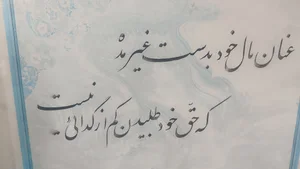 عنان مال خود بدست غیر مده
که حق خود طلبیدن کم از گدائی نیست